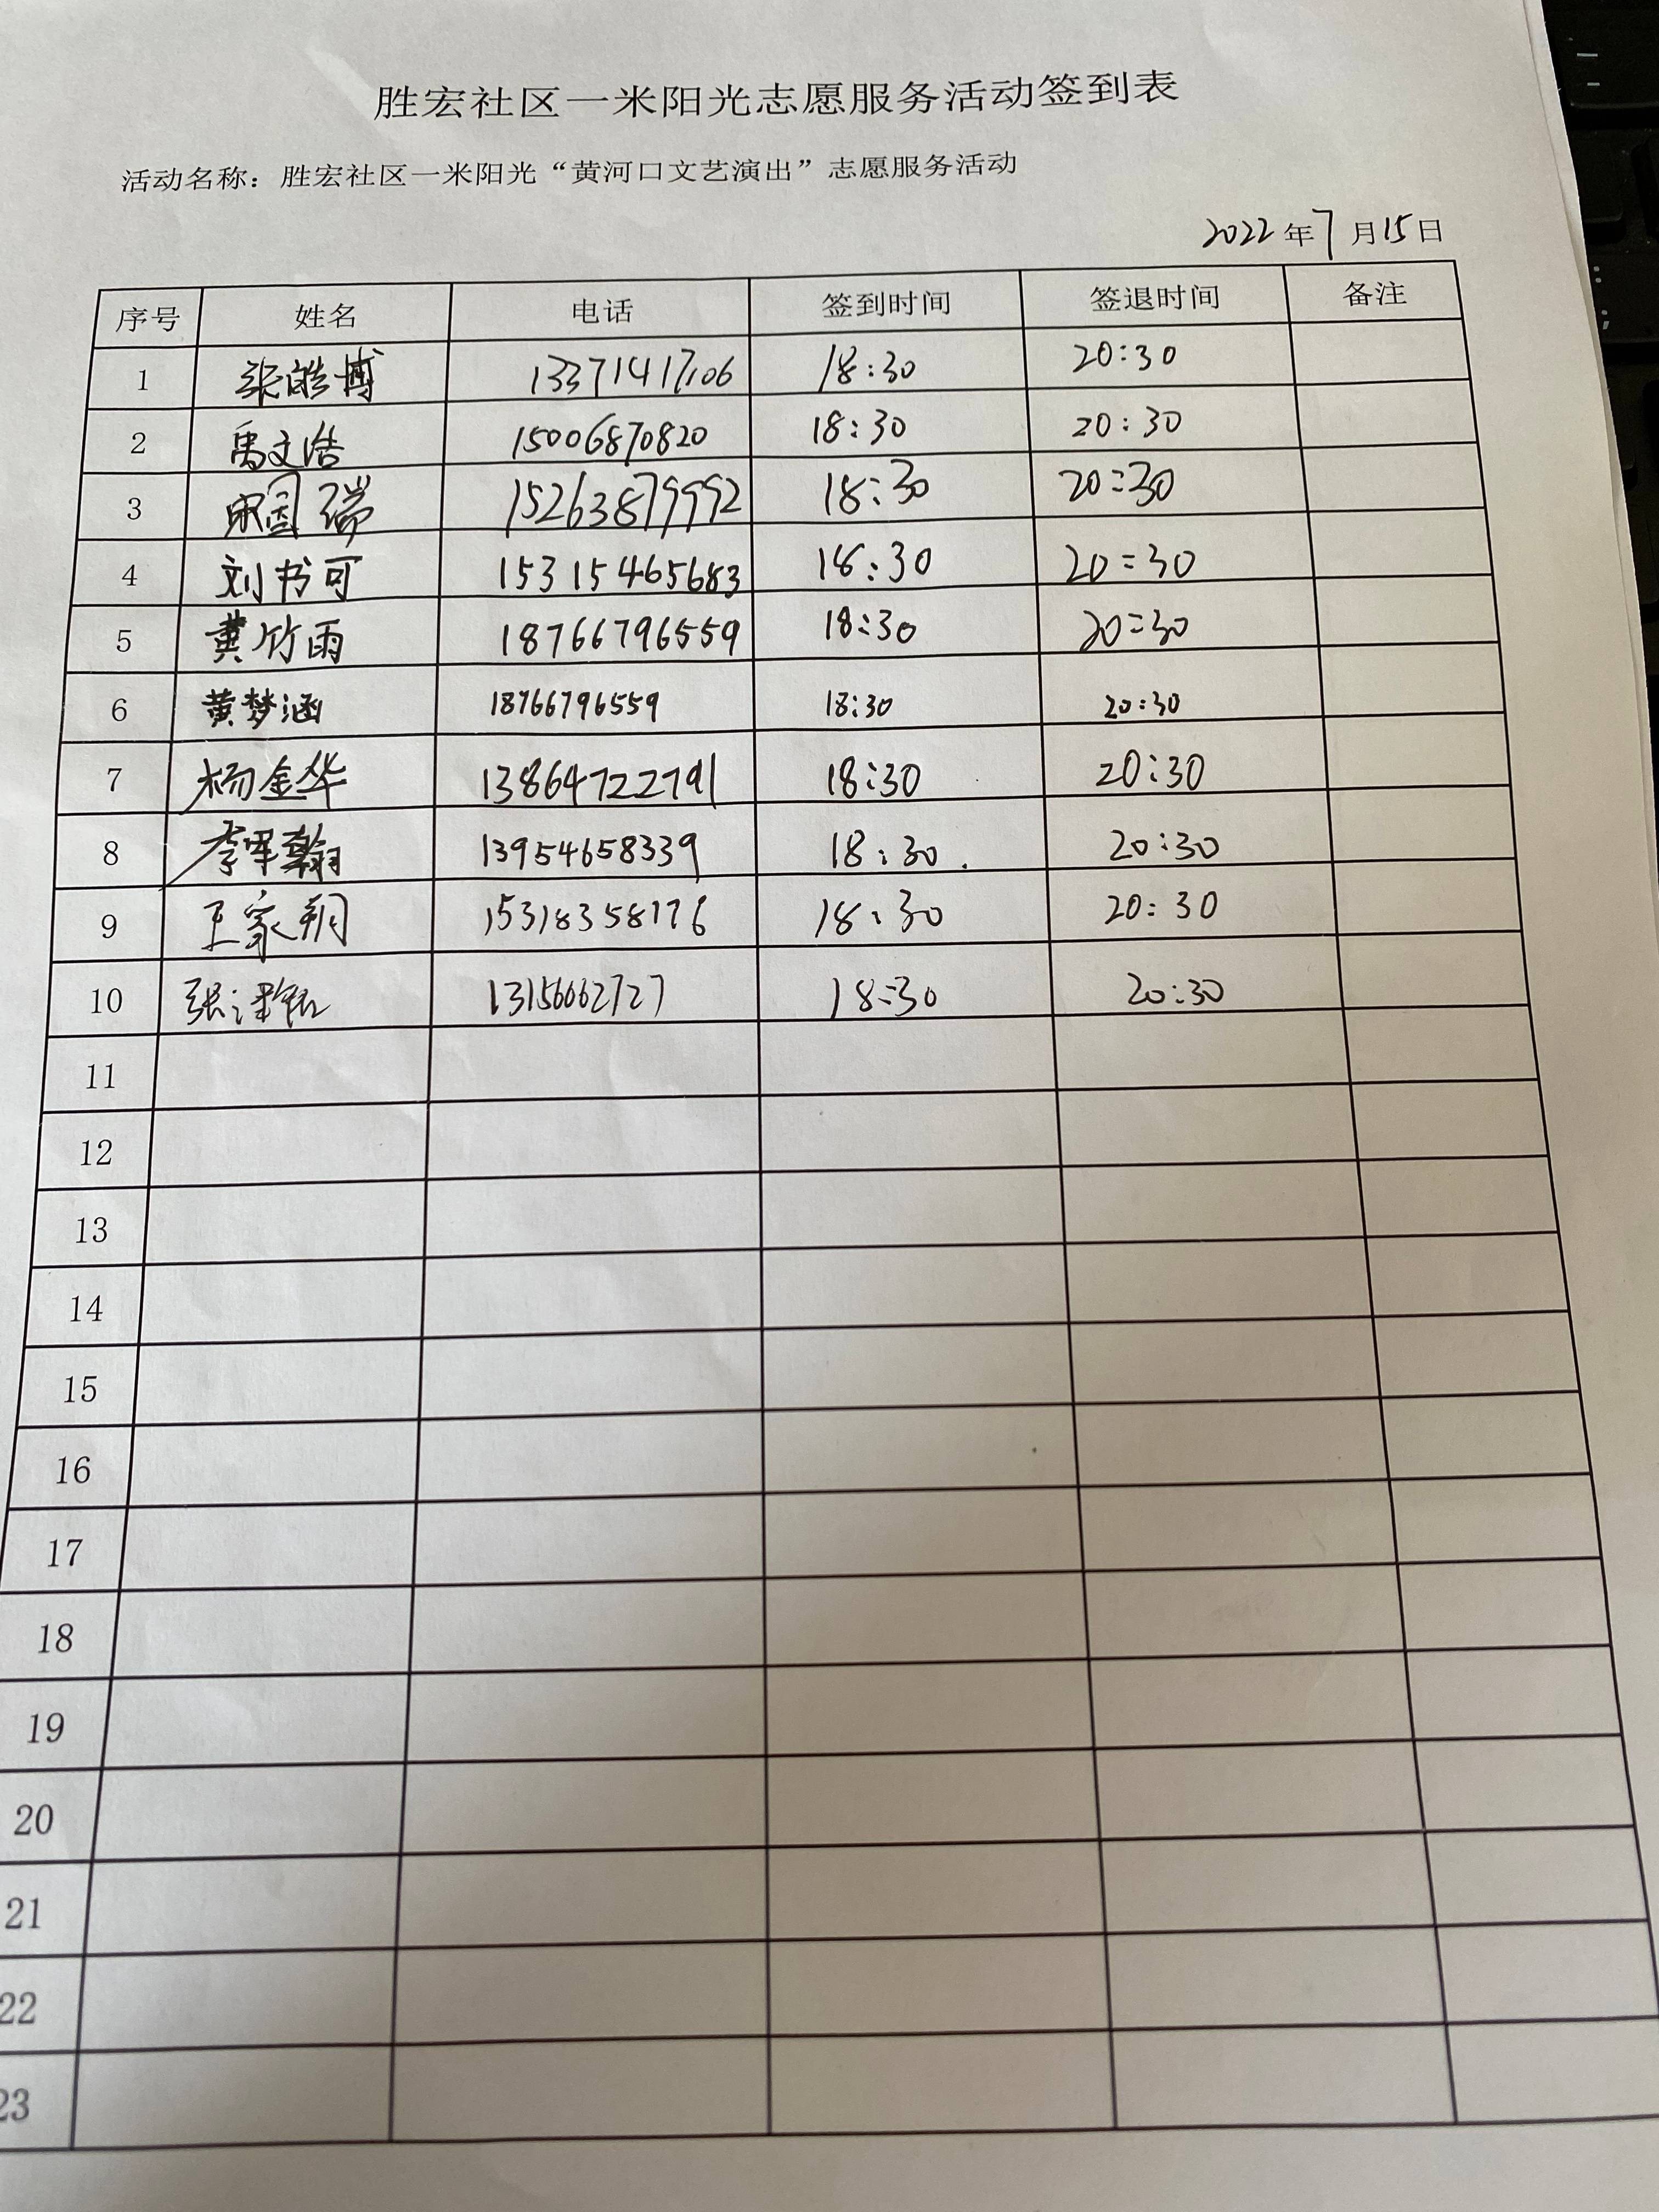 胜宏社区一米阳光志愿服务活动签到表
活动名称：胜宏社区一米阳光“黄河口文艺演出”志愿服务活动
2022年7月15日
序号 姓名 电话 签到时间 签退时间 备注
1 张皓博 13371417106 18:30 20:30
2 禹文浩 15006870820 18:30 20:30
3 瑞 15263879992 18:30 20:30
4 刘书可 15315465683 18:30 20:30
5 黄竹雨 18766796559 18:30 20:30
6 黄梦涵 18766796559 18:30 20:30
7 杨金华 13864722791 18:30 20:30
8 李 翰 13954658339 18:30 20:30
9 王家 15318358176 18:30 20:30
10 张泽铭 13156662727 18:30 20:30
11
12
13
14
15
16
17
18
19
20
21
22
23